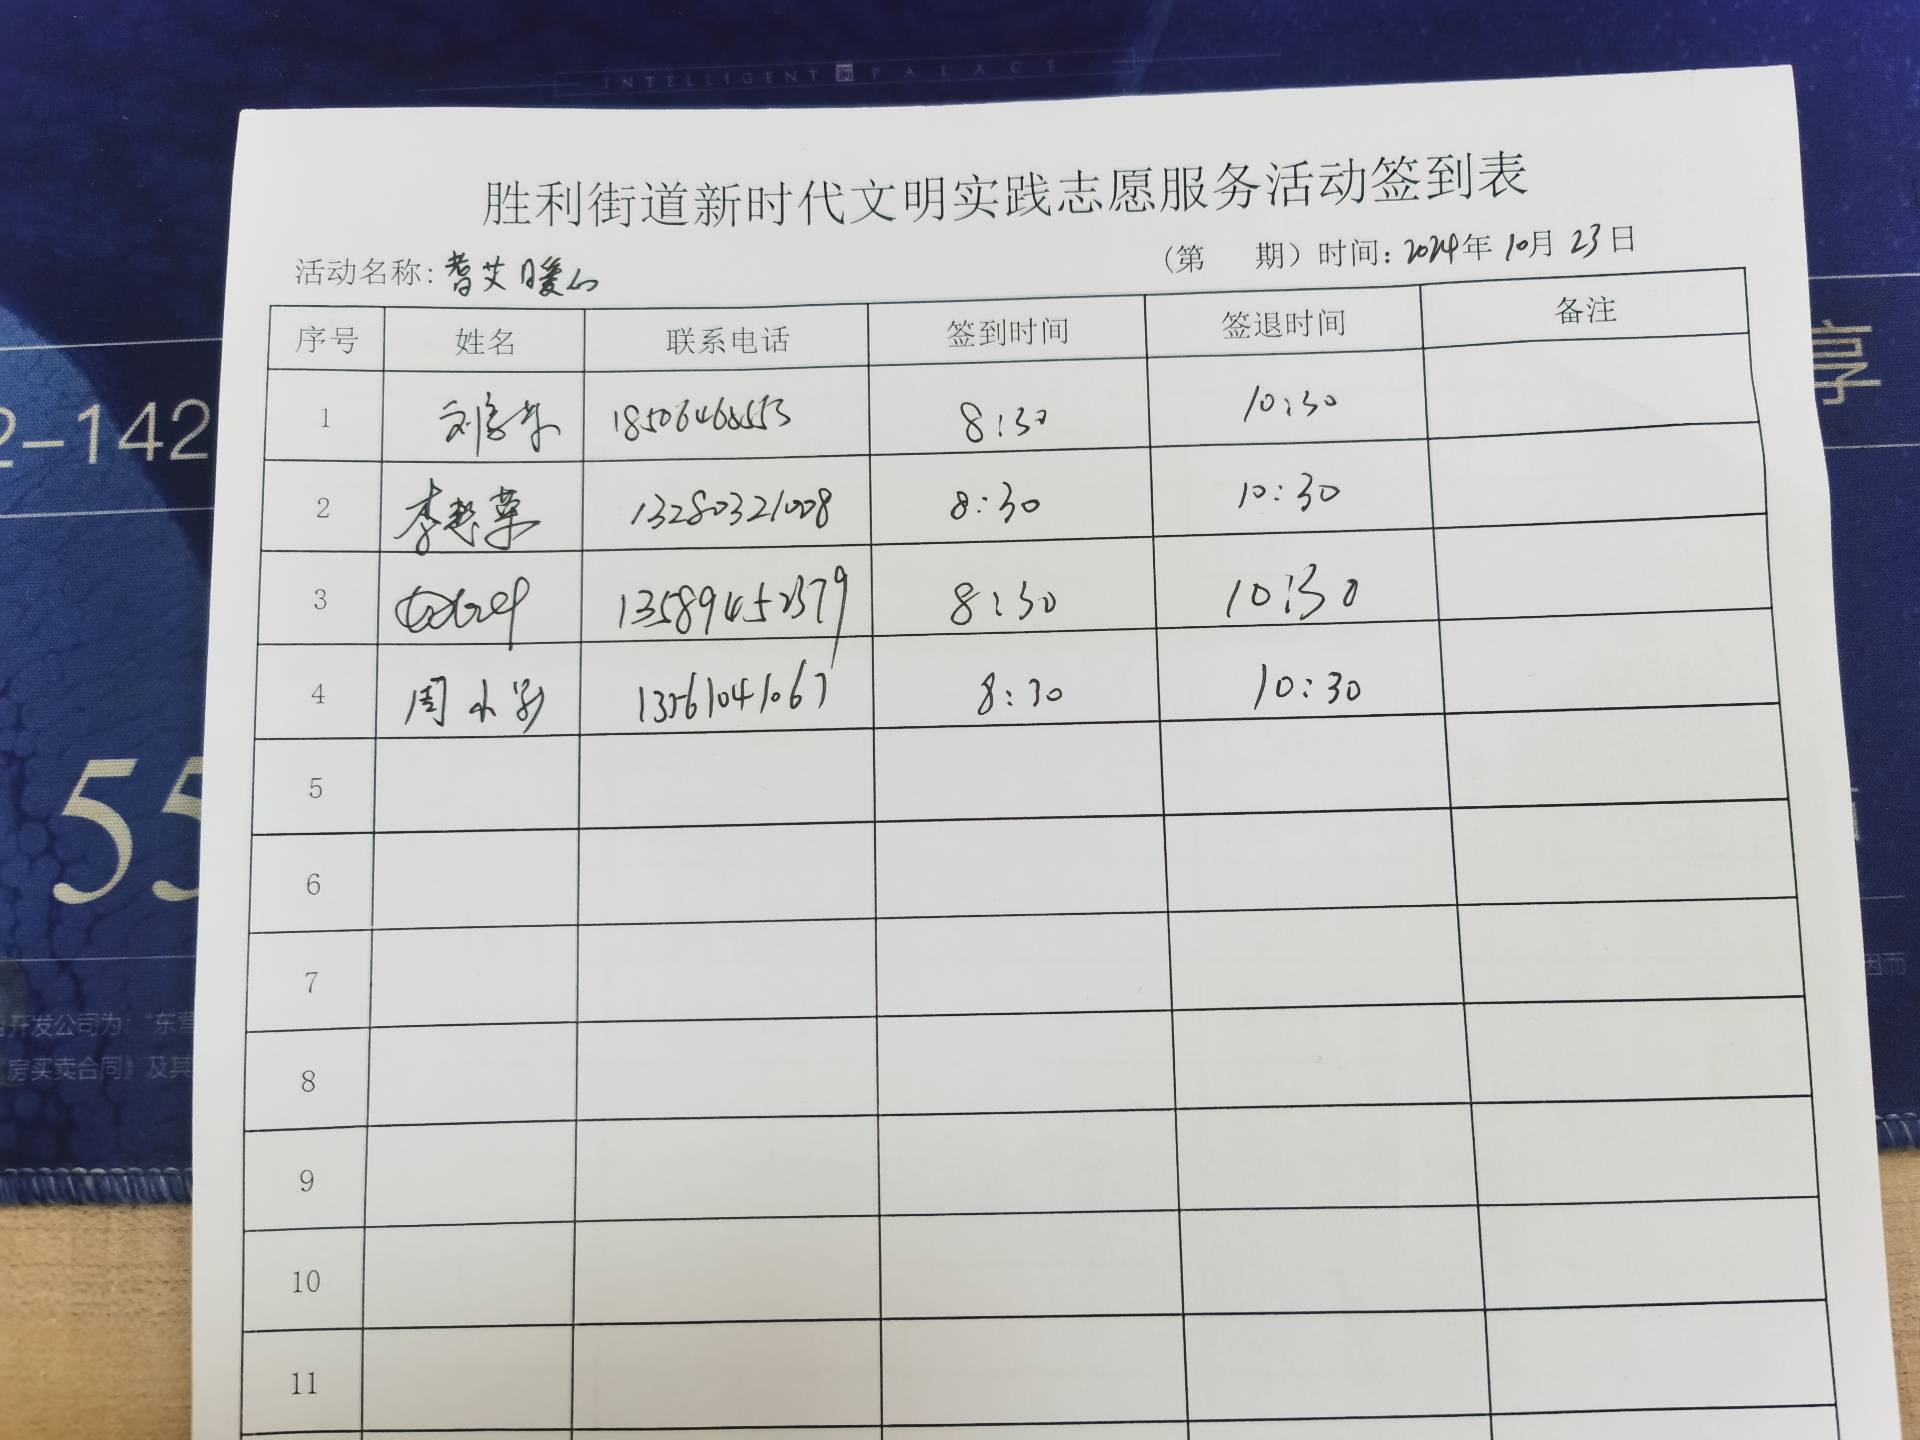 INTELLIGENT PALACE
胜利街道新时代文明实践志愿服务活动签到表
活动名称:耆艾暖心
(第 期)时间:2024年10月23日
序号 姓名 联系电话 签到时间 签退时间 备注
1 8:30 10:30
2 李 13280321008 8:30 10:30
3 13589452379 8:30 10:30
4 周 13561041067 8:30 10:30
5
6
7
8
9
10
11
2-142
享
55
开发公司为:"东营
房买卖合同》及其
因而